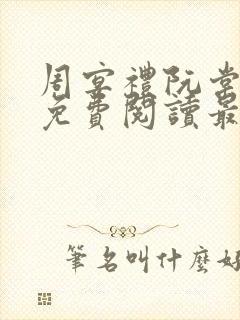 周宴禮阮棠
免費閱讀最
筆名叫什麼好